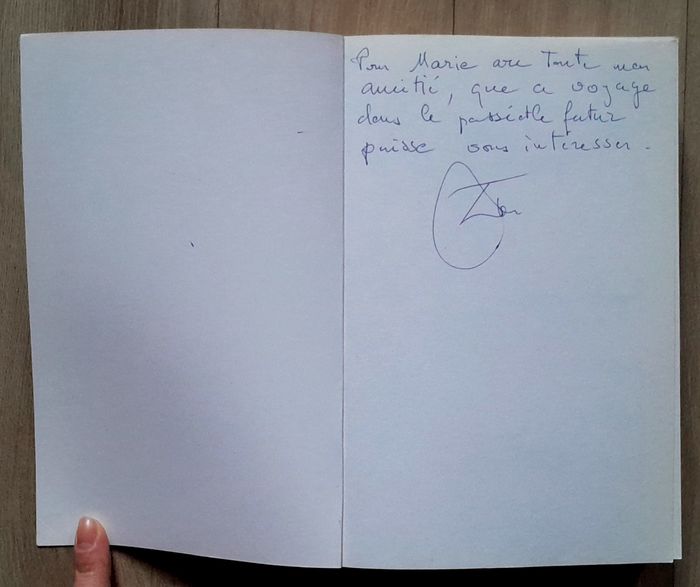 Pour Marie avec toute mon
amitié, que ce voyage
dans le passé et le futur
puisse vous intéresser.